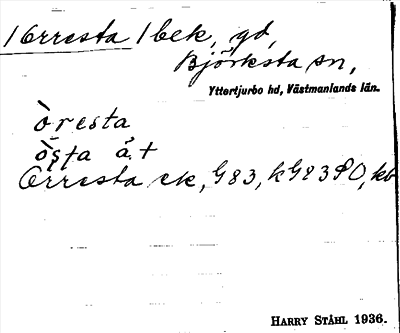 /Orresta/ bek, gd,
Björksta sn,
Yttertjurbo hd, Västmanlands län.
òresta
òsta å. +
Orresta ek, G83, kG83 PO, kb
HARRY STÅHL 1936.